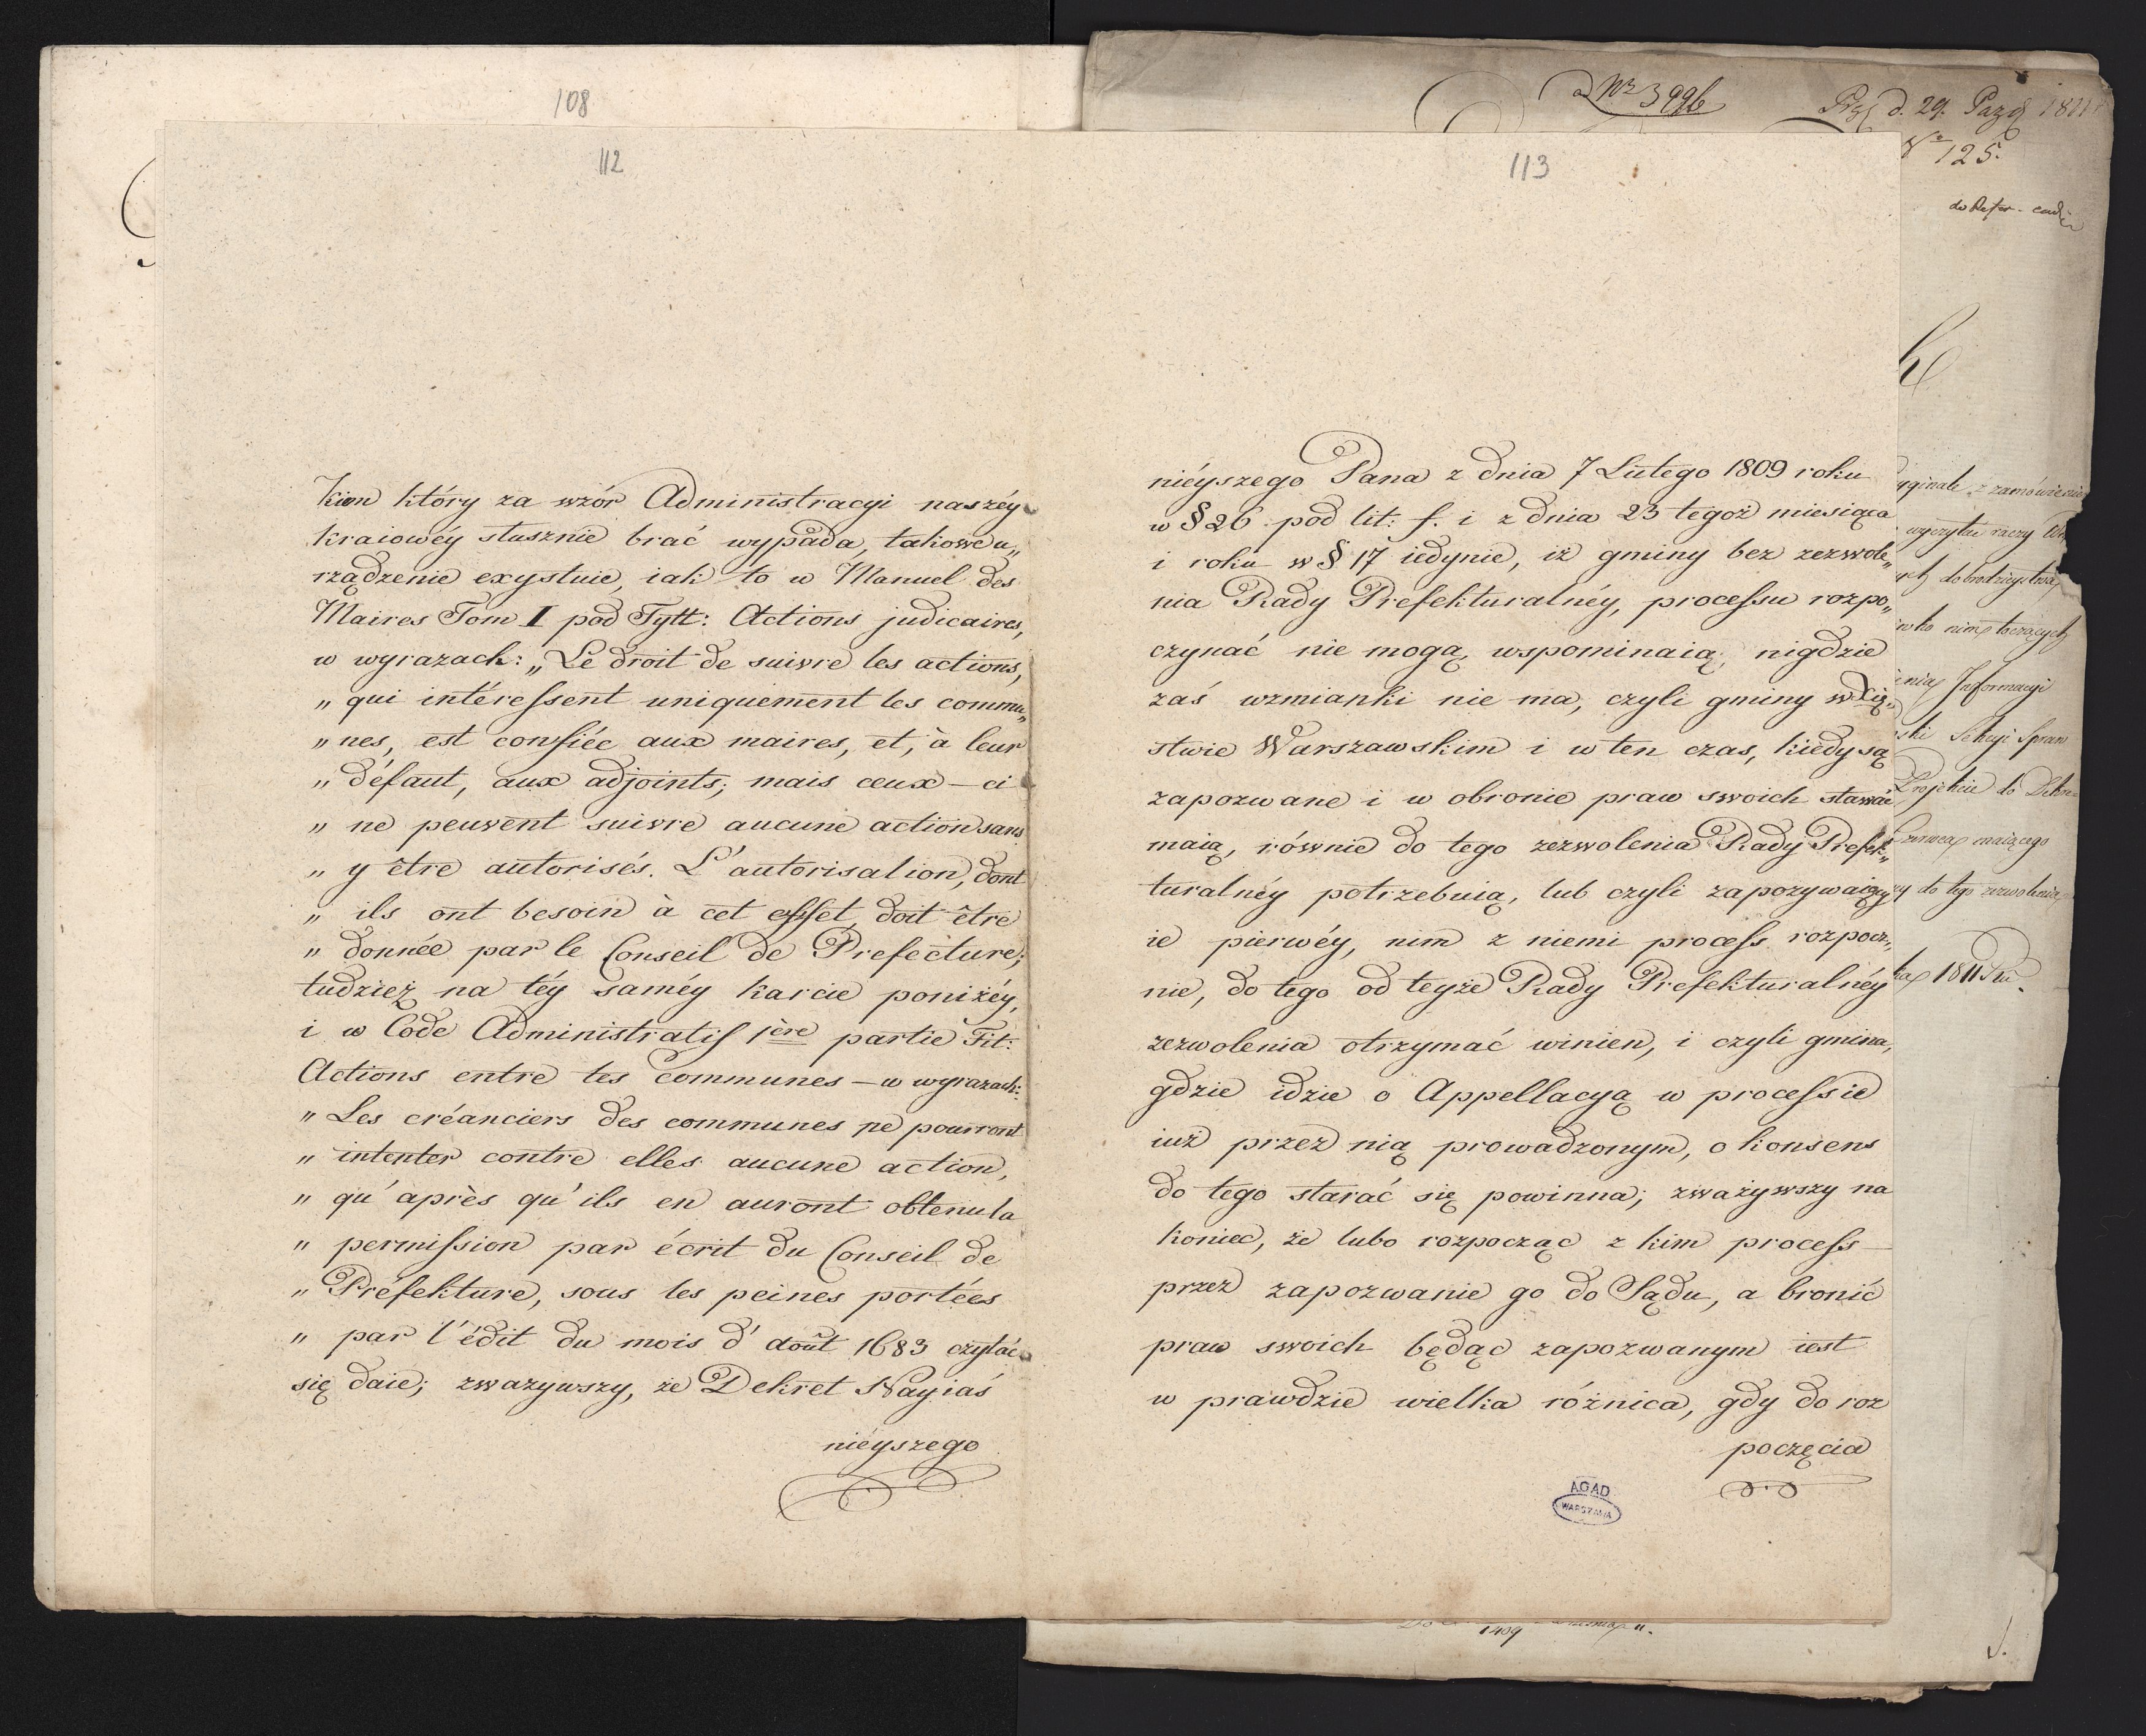 108
112
kiem który za wzór Administracyi naszéy
kraiowéy słusznie brać wypada, takowe u„
rządzenie exystuie, iak to w Manuel des
Maires Tom I pod Tytt: Actions judicaires,
w wyrazach: „Le droit de suivre les actions,
„ qui intéressent uniquement les commu„
„ nes, est confiée aux maires, et, à leur
„ défaut, aux adjoints; mais ceux-ci
„ ne peuvent suivre aucune action sans
„ y être autorisés. L'autorisation, dont
„ ils ont besoin à cet effet, doit être
„ donnée par le Conseil de Prefecture;
tudzież na téy saméy karcie poniżéy,
i w Code Administratif 1ère partie Tit:
Actions entre les communes – w wyrazach:
„ Les créanciers des communes ne pourront
„ intenter contre elles aucune action,
„ qu'après qu'ils en auront obtenu la
„ permission par écrit du Conseil de
„ Préfekture, sous les peines portées
„ par l'édit du mois d'août 1683 czytać
się daie; zważywszy, że Dekret Nayiaś
nieyszego
113
niéyszego Pana z dnia 7 Lutego 1809 roku
w § 26 pod lit: f. i z dnia 23 tegoż miesiąca
i roku w § 17 iedynie, iż gminy bez zezwole„
nia Rady Prefekturalnéy, processu rozpo„
czynać nie mogą, wspominaią; nigdzie
zaś wzmianki nie ma, czyli gminy w Xię„
stwie Warszawskim i w ten czas, kiedy są
zapozwane i w obronie praw swoich stawać
maią, równie do tego zezwolenia Rady Prefek„
turalnéy potrzebuią, lub czyli zapozywaiący
ie pierwéy, nim z niemi process rozpocz„
nie, do tego od teyże Rady Prefekturalnéy
zezwolenia otrzymać winien, i czyli gmina,
gdzie idzie o Appellacyą w processie
iuż przez nią prowadzonym, o konsens
do tego starać się powinna; zważywszy na
koniec, że lubo rozpocząć z kim process
przez zapozwanie go do Sądu, a bronić
praw swoich będąc zapozwanym iest
w prawdzie wielka różnica, gdy do roz
poczęcia
AGAD
WARSZAWA
Nr 3996
d. 29. Paźd 1811
125.
zamówienie
wyczytać raczy
dobrodzieystwa
nim toczących
Informacyi
Sekcyi Spraw
Projekcie do
maiącego
do tego zezwolenia
1811
1409